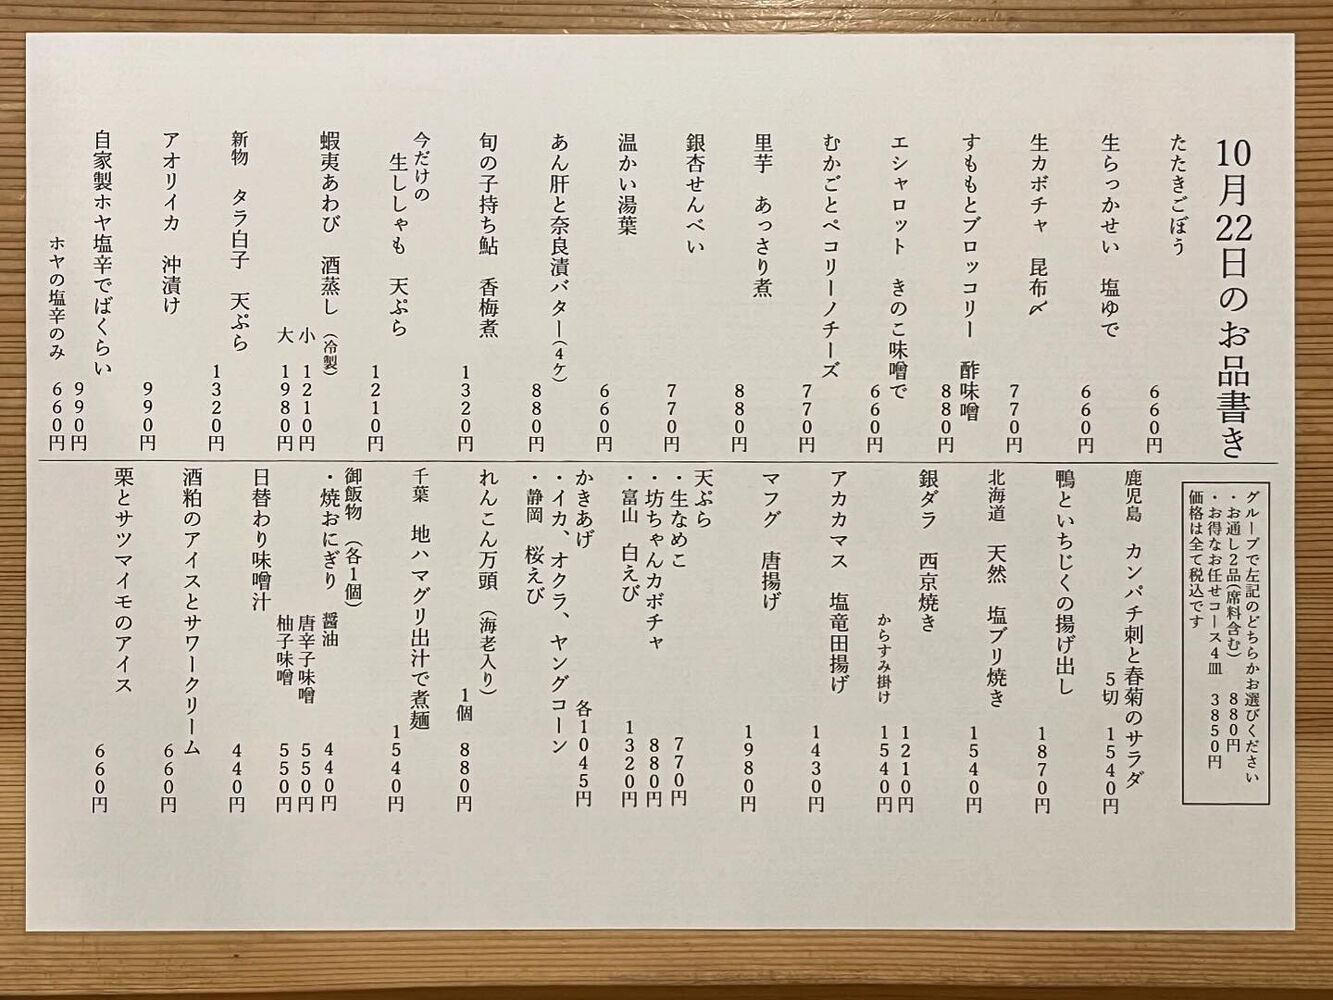 10月22日のお品書き
たたきごぼう
660円
生らっかせい 塩ゆで
660円
生カボチャ 昆布〆
770円
すももとブロッコリー 酢味噌
880円
エシャロット きのこ味噌で
660円
むかごとペコリーノチーズ
770円
里芋 あっさり煮
880円
銀杏せんべい
770円
温かい湯葉
660円
あん肝と奈良漬バター(4ケ)
880円
旬の子持ち鮎 香梅煮
1320円
今だけの
生ししゃも 天ぷら
1210円
蝦夷あわび 酒蒸し(冷製)
小 1210円
大 1980円
新物 タラ白子 天ぷら
1320円
アオリイカ 沖漬け
990円
自家製ホヤ塩辛でばくらい
990円
ホヤの塩辛のみ 660円
グループで左記のどちらかお選びください
・お通し2品(席料含む) 880円
・お得なお任せコース4皿 3850円
価格は全て税込です
鹿児島 カンパチ刺と春菊のサラダ
5切 1540円
鴨といちじくの揚げ出し
1870円
北海道 天然 塩ブリ焼き
1540円
銀ダラ 西京焼き
1210円
からすみ掛け 1540円
アカカマス 塩竜田揚げ
1430円
マフグ 唐揚げ
1980円
天ぷら
・生なめこ 770円
・坊ちゃんカボチャ 880円
・富山 白えび 1320円
かきあげ 各1045円
・イカ、オクラ、ヤングコーン
・静岡 桜えび
れんこん万頭 (海老入り)
1個 880円
千葉 地ハマグリ出汁で煮麺
1540円
御飯物 (各1個)
・焼おにぎり 醤油 440円
唐辛子味噌 550円
柚子味噌 550円
日替わり味噌汁
440円
酒粕のアイスとサワークリーム
660円
栗とサツマイモのアイス
660円